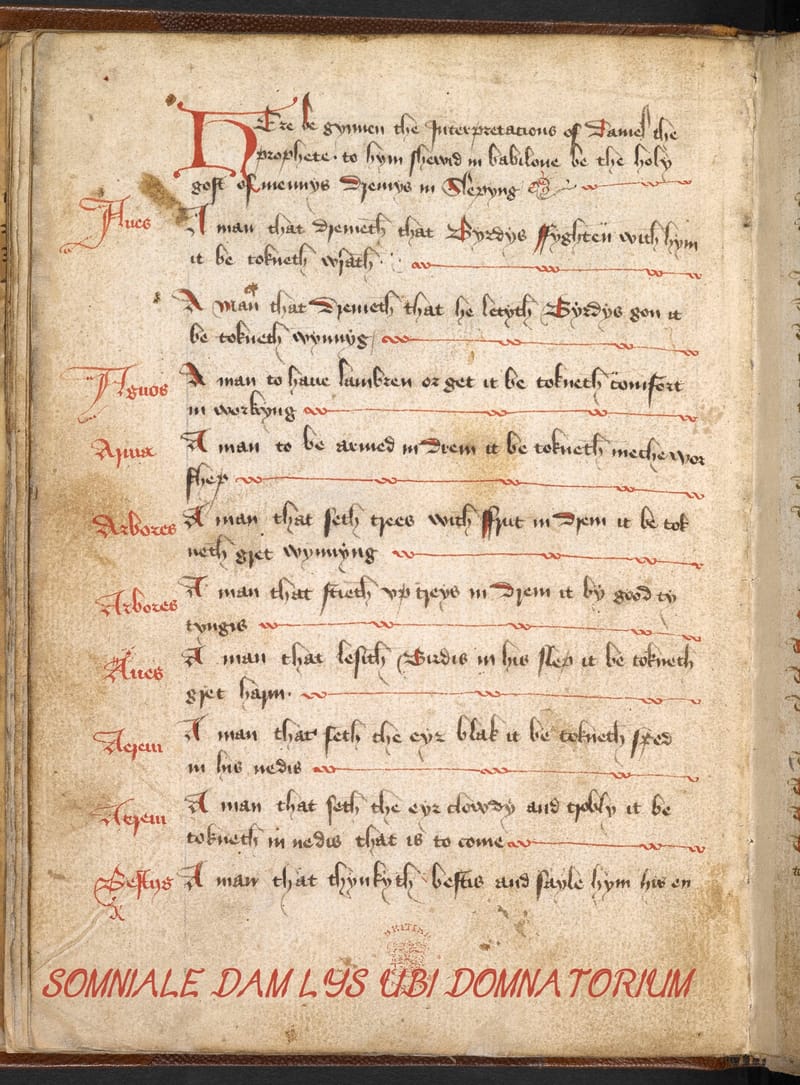 HEre be gynnen the Interpretacions of Daniel the
prophete · to hym shewid in babilone be the holy
gost of mennys Dremys in Slepyng
Aues
A man that dremeth that Byrdys ffyghten with hym
it be tokneth wrath ·
A man that Dremeth that he letyth Byrdys gon it
be tokneth wynnyg
Agnos
A man to haue lambren or get it be tokneth comfort
in workyng
Arma
A man to be armed in Drem it be tokneth meche wor
shep
Arbores
A man that seth trees with ffrut in Drem it be tok
neth gret wynnyng
Arbores
A man that stieth vp treys in Drem it by good ty
tyngis
Aues
A man that lesith Birdis in his slep it be tokneth
gret harm ·
Aerem
A man that seth the eyr blak it be tokneth sped
in his nedis
Aerem
A man that seth the eyr clowdy and trobly it be
tokneth in nedis that is to come
Bestys
A man that thynkyth bestis and sayle hym his en
SOMNIALE DAM LYS UBI DOMNATORIUM